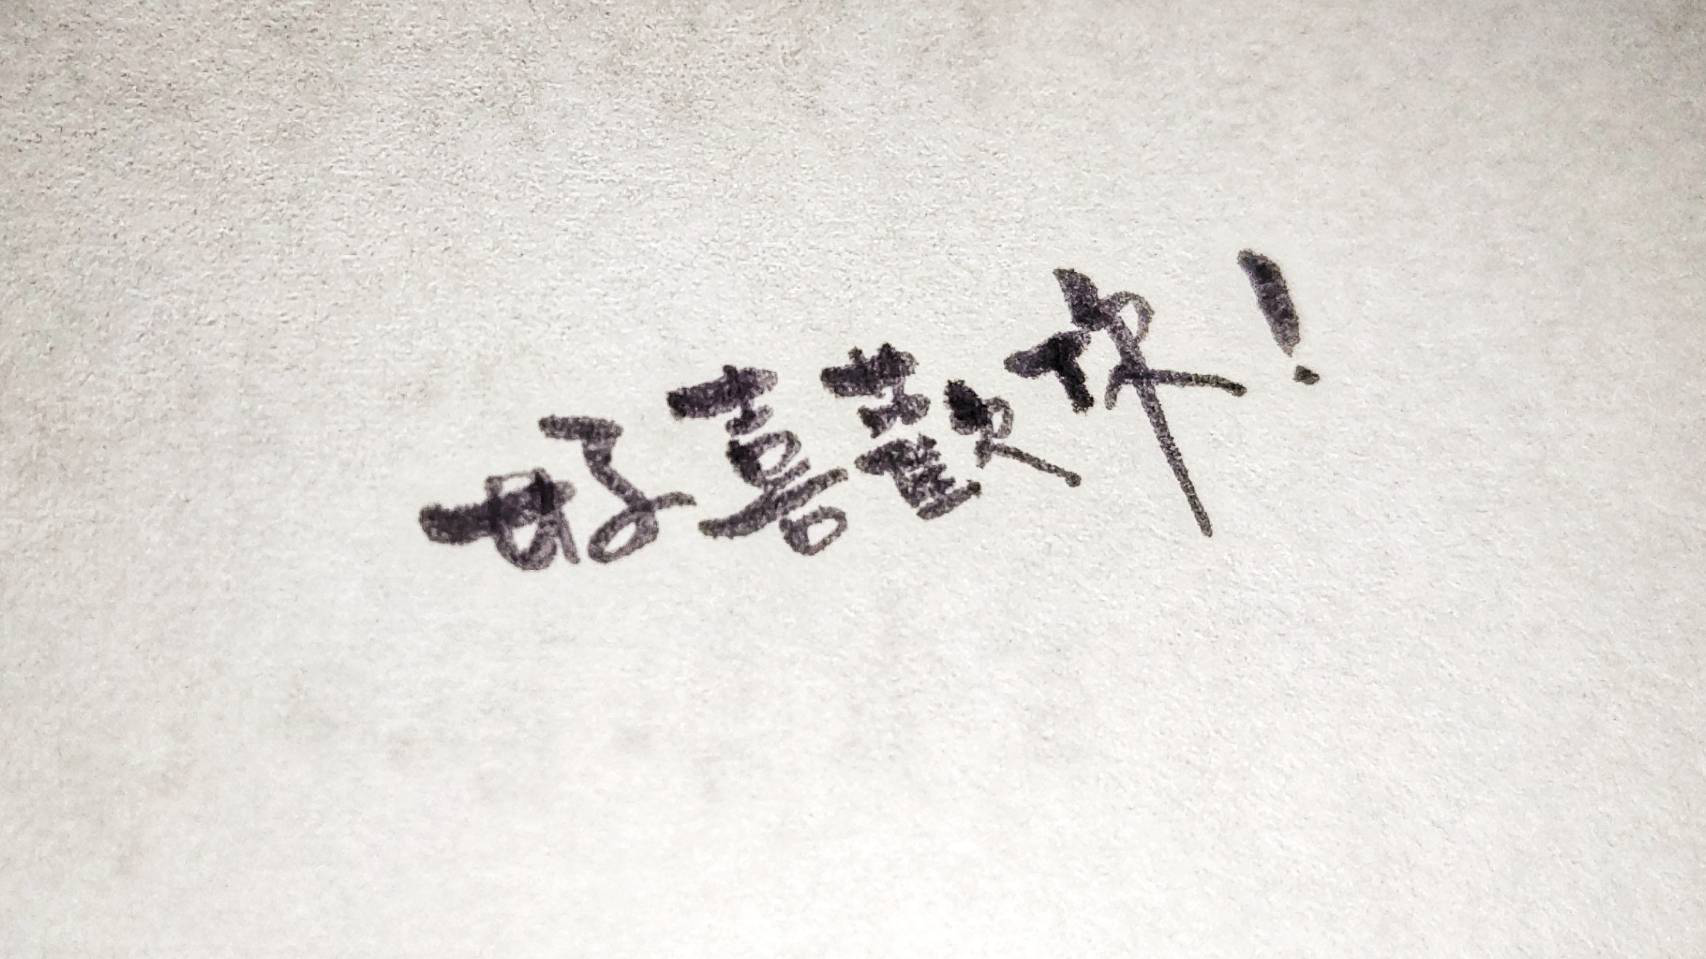 好喜歡你!